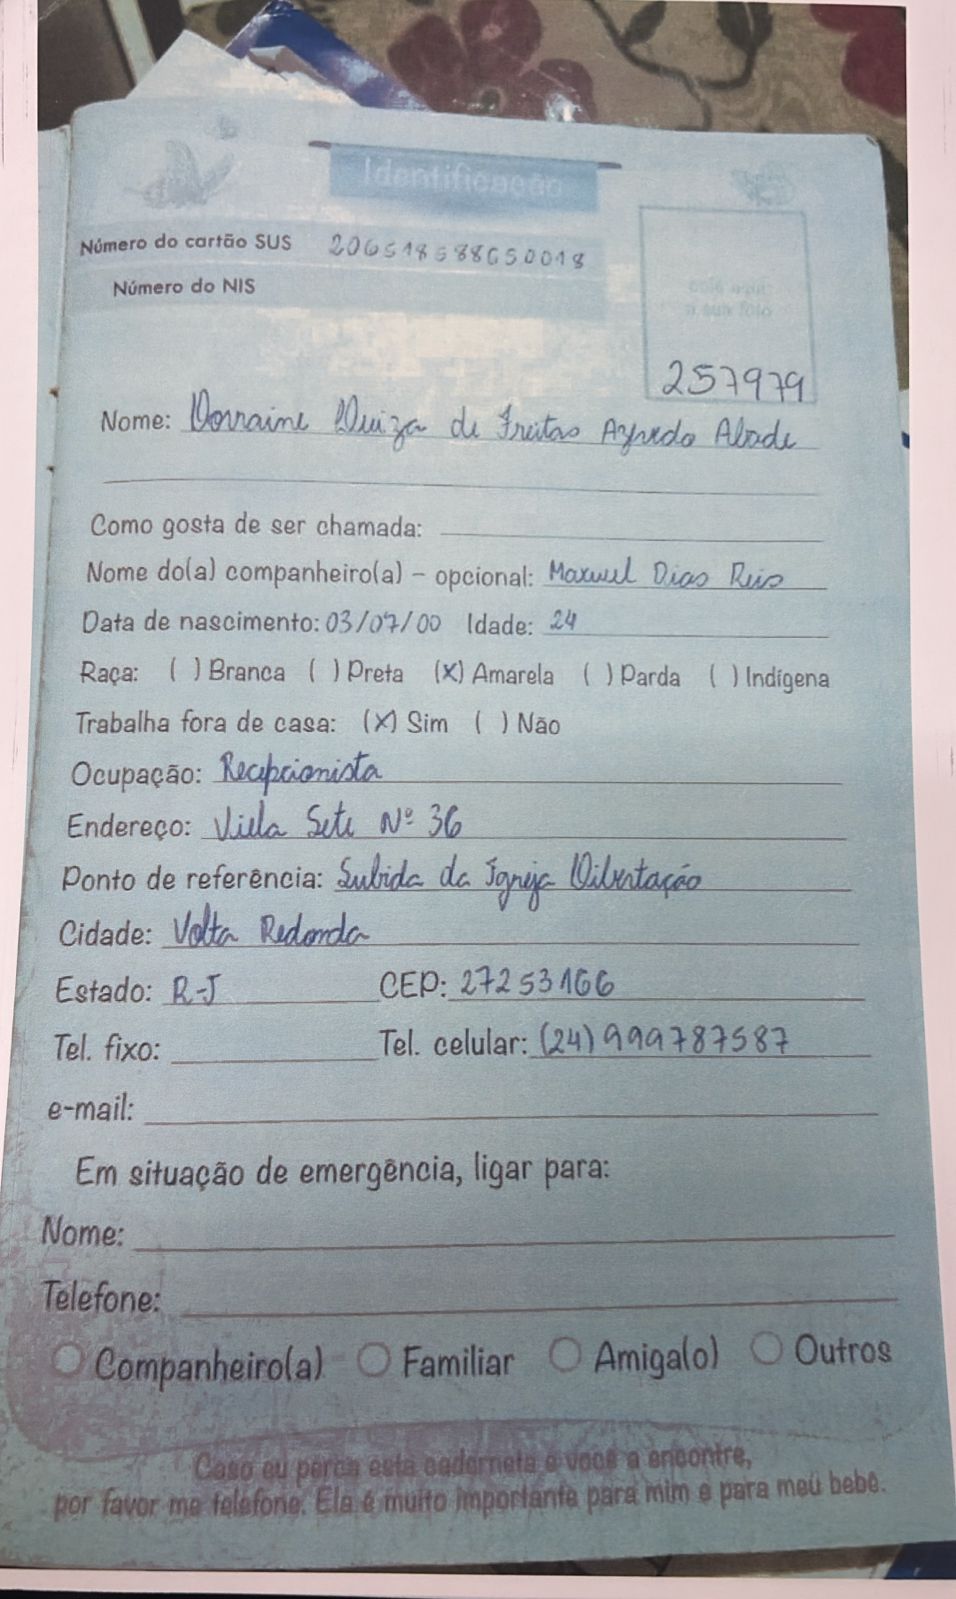 Identificação
Número do cartão SUS 206518588650018
Número do NIS
cole aqui
a sua foto
257979
Nome: Lorraine Luiza de Freitas Azevedo Alade
Como gosta de ser chamada:
Nome do(a) companheiro(a) - opcional: Maxwel Dias Reis
Data de nascimento: 03/07/00 Idade: 24
Raça: ( ) Branca ( ) Preta (X) Amarela ( ) Parda ( ) Indígena
Trabalha fora de casa: (X) Sim ( ) Não
Ocupação: Recepcionista
Endereço: Viela Sete Nº 36
Ponto de referência: Subida da Igreja Libertação
Cidade: Volta Redonda
Estado: R-J CEP: 27253166
Tel. fixo: Tel. celular: (24) 999787587
e-mail:
Em situação de emergência, ligar para:
Nome:
Telefone:
Companheiro(a) Familiar Amiga(o) Outros
Caso eu perca esta caderneta e você a encontre,
por favor me telefone. Ela é muito importante para mim e para meu bebê.